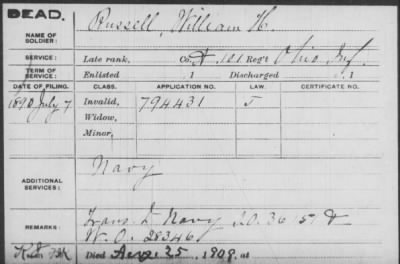 DEAD.
Russell, William H.
NAME OF SOLDIER:
SERVICE: Late rank, Co. 101 Reg't Ohio Inf.
TERM OF SERVICE: Enlisted , 1 Discharged , 1
DATE OF FILING. CLASS. APPLICATION NO. LAW. CERTIFICATE NO.
1890 July 7 Invalid, 794431 J
Widow,
Minor,
ADDITIONAL SERVICES: Navy
REMARKS: Trans. Navy
28346
Died 25, 1909, at